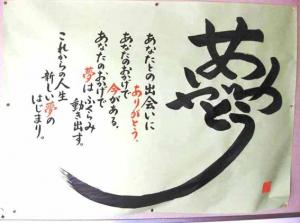 ありがとう
あなたとの出会いに
ありがとう。
あなたのおかげで
今がある。
あなたのおかげで
夢はふくらみ
動き出す。
これからの人生
新しい夢の
はじまり。